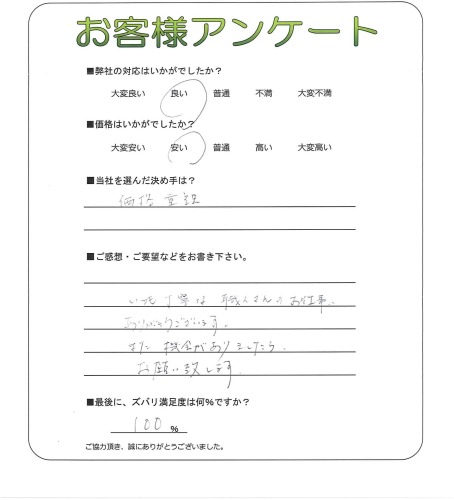 お客様アンケート
■弊社の対応はいかがでしたか？
大変良い 良い 普通 不満 大変不満
■価格はいかがでしたか？
大変安い 安い 普通 高い 大変高い
■当社を選んだ決め手は？
価格重視
■ご感想・ご要望などをお書き下さい。
いつも丁寧な職人さんのお仕事、
ありがとうございます。
また機会がありましたら、
お願い致します。
■最後に、ズバリ満足度は何％ですか？
100 ％
ご協力頂き、誠にありがとうございました。